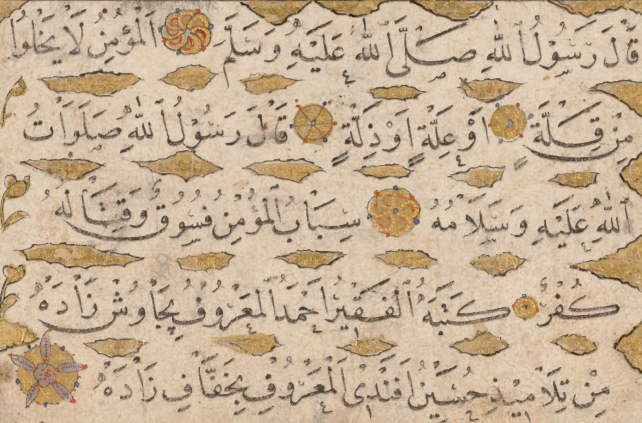 قَالَ رَسُولُ اللهِ صَلَّى اللهُ عَلَيْهِ وَسَلَّمَ الْمُؤْمِنُ لَا يَخْلُوا
مِنْ قِلَّةٍ اَوْ عِلَّةٍ اَوْ ذِلَّةٍ قَالَ رَسُولُ اللهِ صَلَوَاتُ
اللهِ عَلَيْهِ وَسَلَامُهُ سِبَابُ الْمُؤْمِنِ فُسُوقٌ وَقِتَالُهُ
كُفْرٌ كَتَبَهُ الْفَقِيرُ اَحْمَدُ الْمَعْرُوفُ بِچَاوُشْ زَادَهْ
مِنْ تَلَامِيذِ حُسَيْنْ اَفَنْدِى الْمَعْرُوفِ بِخَفَّافْ زَادَهْ